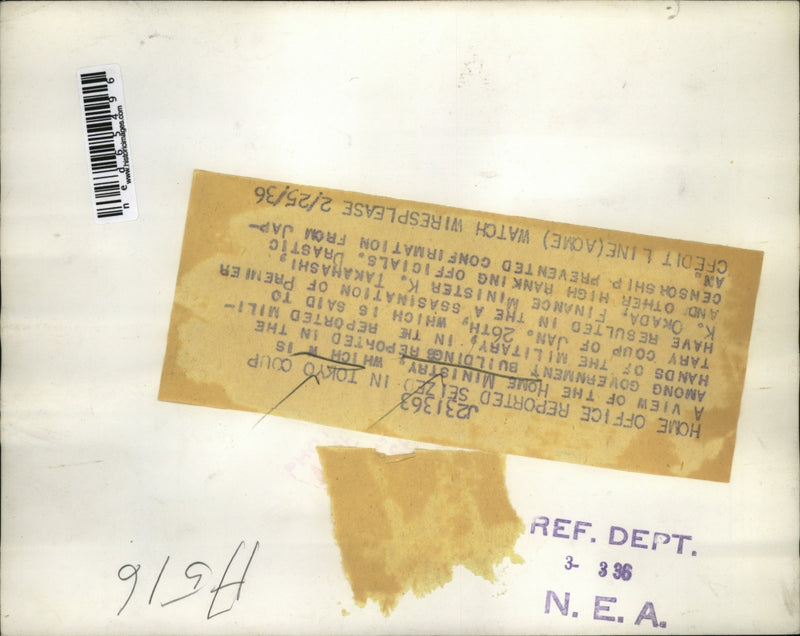 www.historicimages.com
ned65496
J231363
HOME OFFICE REPORTED SEIZED IN TOKYO COUP
A VIEW OF THE HOME MINISTRY, WHICH W IS
AMONG GOVERNMENT BUILDINGS REPORTED IN THE
HANDS OF THE MILITARY, IN THE REPORTED MILI-
TARY COUP OF JAN. 26TH, WHICH IS SAID TO
HAVE RESULTED IN THE A SSASINATION OF PREMIER
K. OKADA; FINANCE MINISTER K. TAKAHASHI,
AND OTHER HIGH RANKING OFFICIALS. DRASTIC
CENSORSHIP PREVENTED CONFIRMATION FROM JAP-
AN.
CREDIT LINE(ACME) WATCH WIRESPLEASE 2/25/36
REF. DEPT.
3- 3 36
N. E. A.
A516